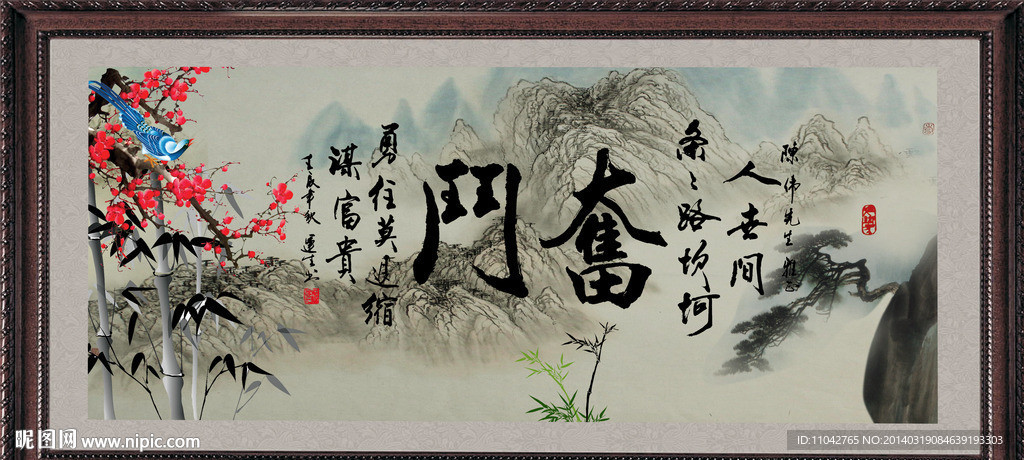 陳伟先生雅正
人世间
条々路坎坷
奮鬥
勇往莫退缩
谋富貴
壬辰年秋
昵图网 www.nipic.com
ID:11042765 NO:20140319084639193303